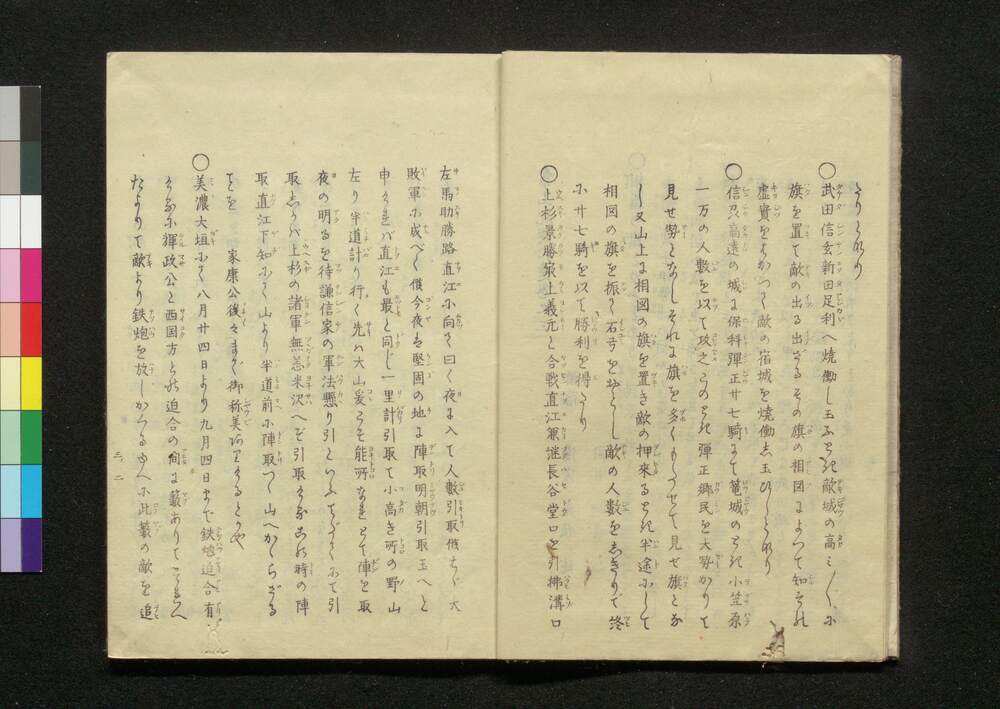 よりとなり
○武田信玄新田足利へ焼働し玉ふとき敵城の高き所に
旗を置て敵の出る出ざるその旗の相図によつて知それ
虚實をはかつて敵の宿城を焼働し玉ひしとなり
○信忍高遠の城に保科彈正廿七騎にて篭城のとき小笠原
一万の人数を以て攻之このとき彈正郷民を大勢かりて
見せ勢となしそれに旗を多くもたせて見せ旗とな
し又山上に相図の旗を置き敵の押來るとき半途にして
相図の旗を振て石弓をおとし敵の人数をしきりて終
に廿七騎を以て勝利を得たり
○上杉景勝最上義元と合戰直江兼継長谷堂口を引拂溝口
左馬助勝路直江に向て曰く夜に入て人数引取候はゞ大
敗軍に成べく候今夜は堅固の地に陣取明朝引取玉へと
申ければ直江も最と同じ一里計引取て小高き所の野山
左り半道計り行く先は大山爰こそ能所なれとて陣を取
夜の明るを待謙信家の軍法懸り引といふてだてにて引
取しかば上杉の諸軍無恙米沢へぞ引取ける此時の陣
取直江下知にて山より半道前に陣取つて山へかゝらざる
とを 家康公後々まで御称美ありけるとかや
○美濃大垣にて八月廿四日より九月四日まで鉄炮迫合有
ける に揮政公と西国方との迫合の間に藪ありてこゝへ
たよりて敵より鉄炮を放しかくるゆへに此藪の敵を追
三ノ二